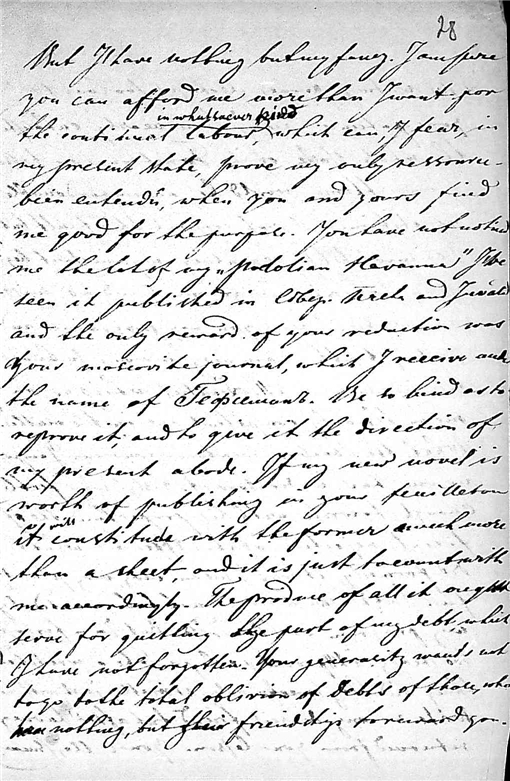 28
But I have nothing but my fancy. I am sure
you can afford me more than I want for
in whatsoever kind
the continual labour, which can, I fear, in
my present state, prove my only ressource
bien entendu, when you and yours find
me good for the purpose. You have not noticed
me the lot of my "Podolian Havanna" I've
seen it published in Сѣвер. Пчела and Inval.
and the only reward of your reduction was
your moscovite journal, which I receive under
the name of . Be so kind as to
reprove it, and to give it the direction of
my present abode. If my new novel is
worth of publishing in your feuilleton
it will constitude with the former much more
than a sheet, and it is just to count with
me accordingly. The produce of all it ought
serve for quitting the part of my debt which
I have not forgotten. Your generosity wants not
to go to the total oblivion of debts of those, who
have nothing, but friendship toward you.